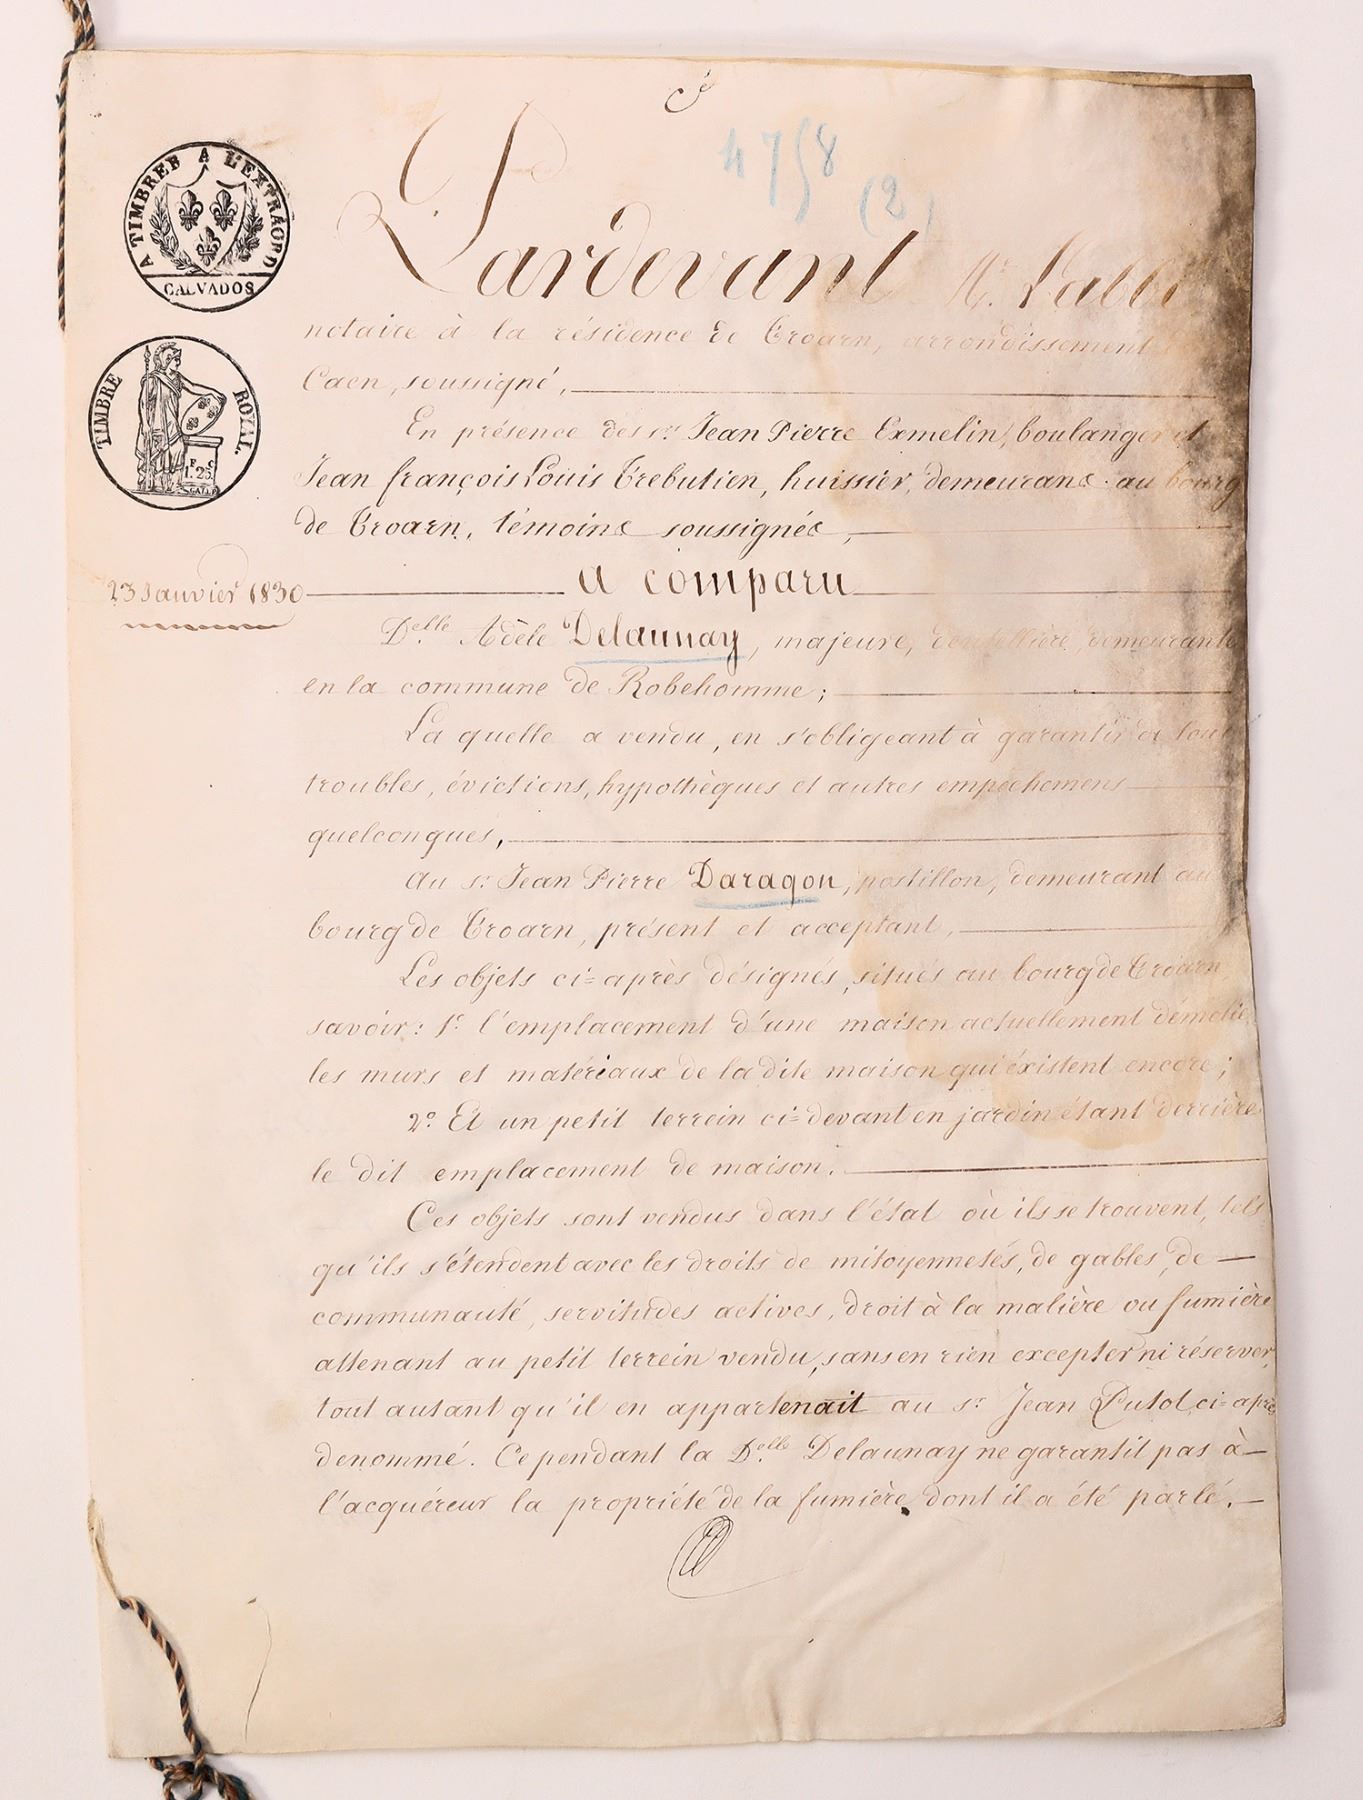 4758
(2)
A TIMBRER A L'EXTRAORD
CALVADOS
TIMBRE ROYAL.
F C
1.25
Pardevant Me. Labbé
notaire à la résidence de Troarn, arrondissement de
Caen, soussigné,
En présence des srs Jean Pierre Exmelin, boulanger et
Jean françois Louis Trebutien, huissier, demeurans au bourg
de Troarn, témoins soussignés,
23 Janvier 1830
a comparu
Delle Adèle Delaunay, majeure, dentellière, demeurante
en la commune de Robehomme;
La quelle a vendu, en s'obligeant à garantir de tous
troubles, évictions, hypothèques et autres empêchemens
quelconques,
Au sr Jean Pierre Daragon, postillon, demeurant au
bourg de Troarn, présent et acceptant,
Les objets ci=après désignés, situés au bourg de Troarn,
savoir: 1º l'emplacement d'une maison actuellement démolie
les murs et matériaux de la dite maison qui éxistent encore;
2º Et un petit terrein ci=devant en jardin étant derrière
le dit emplacement de maison.
Ces objets sont vendus dans l'état où ils se trouvent, tels
qu'ils s'étendent avec les droits de mitoyennetés, de gables, de
communauté, servitudes actives, droit à la malière ou fumière
attenant au petit terrein vendu, sans en rien excepter ni réserver,
tout autant qu'il en appartenait au sr Jean Putot ci=après
denommé. Cependant la Delle Delaunay ne garantit pas à
l'acquéreur la propriété de la fumière dont il a été parlé.